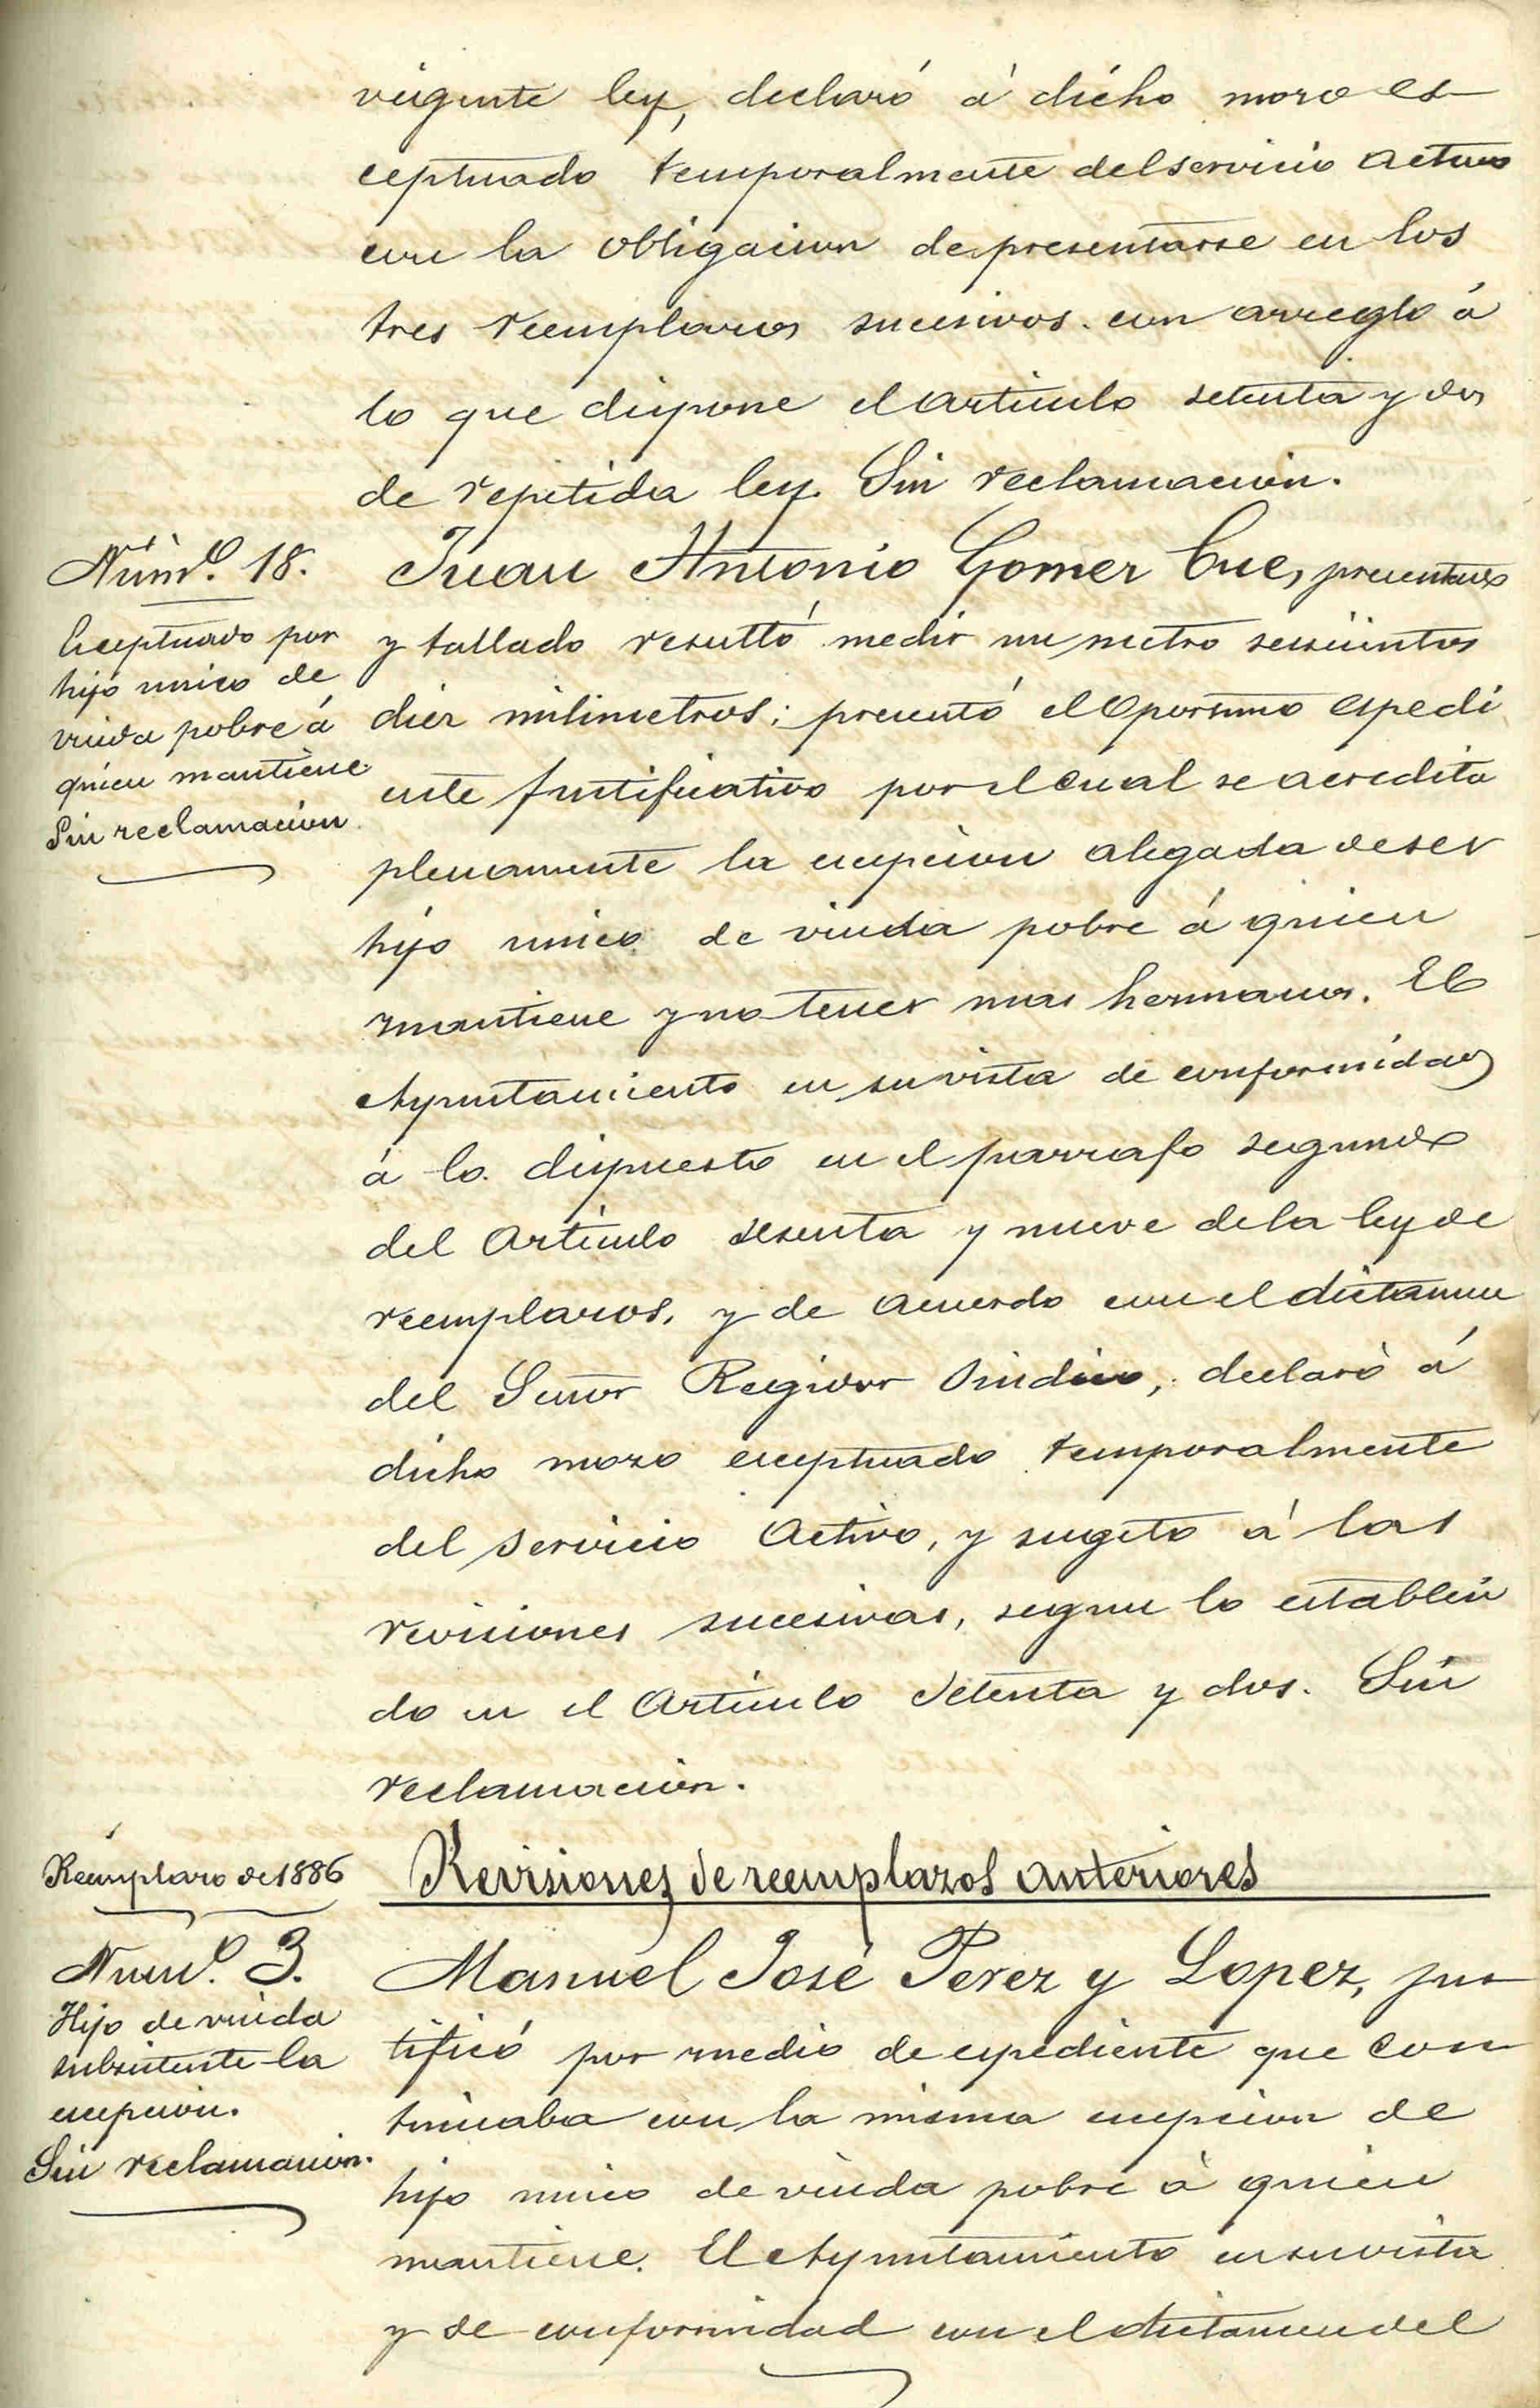 vigente ley, declaró á dicho mozo es
ceptuado temporalmente del servicio activo
con la obligacion de presentarse en los
tres reemplazos sucesivos con arreglo á
lo que dispone el articulo setenta y dos
de repetida ley. Sin reclamacion.
Núm.º 18.
Eceptuado por
hijo unico de
viuda pobre á
quien mantiene
Sin reclamacion
Juan Antonio Gomez Cue, presentado
y tallado resultó medir un metro seiscientos
diez milimetros; presentó el oportuno espedi
ente justificativo por el cual se acredita
plenamente la ecepcion alegada de ser
hijo unico de viuda pobre á quien
mantiene y no tener mas hermanos. El
Ayuntamiento en su vista de conformidad
á lo dispuesto en el parrafo segundo
del Articulo sesenta y nueve de la ley de
reemplazos, y de acuerdo con el dictamen
del Señor Regidor Sindico, declaró á
dicho mozo eceptuado temporalmente
del servicio Activo, y sugeto á las
revisiones sucesivas, segun lo estableci
do en el Articulo setenta y dos. Sin
reclamacion.
Reemplazo de 1886
Revisiones de reemplazos anteriores
Núm.º 3.
Hijo de viuda
subsistente la
ecepcion.
Sin reclamacion.
Manuel José Perez y Lopez, jus
tificó por medio de espediente que con
tinuaba con la misma ecepcion de
hijo unico de viuda pobre á quien
mantiene. El Ayuntamiento en su vista
y de conformidad con el dictamen del